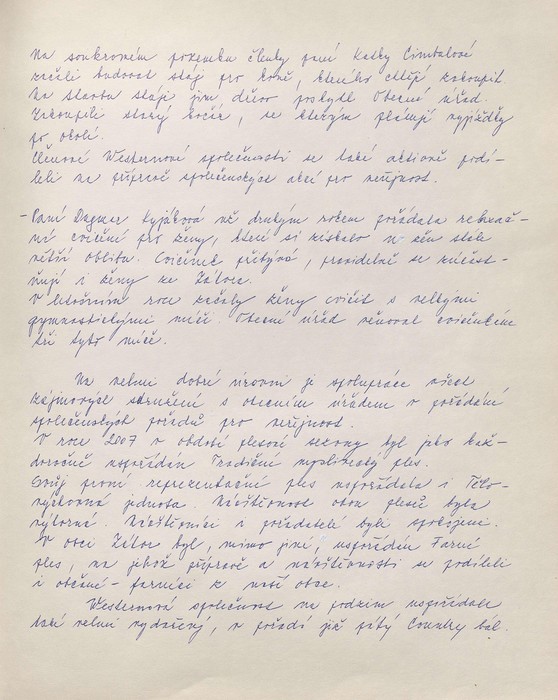 Na soukromém pozemku členky paní Katky Cimbalové
začali budovat stáj pro koně, kterého chtějí zakoupit.
Na stavbu stáji jim dřevo poskytl Obecní úřad.
Zakoupili starý kočár, se kterým plánují vyjížďky
po okolí.
Členové Westernové společnosti se také aktivně podí-
leli na přípravě společenských akcí pro veřejnost.
- Paní Dagmar Kyjáková už druhým rokem pořádala relaxač-
ní cvičení pro ženy, které si získalo u žen stále
větší oblibu. Cvičenek přibývá, pravidelně se zúčast-
ňují i ženy ze Zátora.
V letošním roce začaly ženy cvičit s velkými
gymnastickými míči. Obecní úřad věnoval cvičenkám
tři tyto míče.
Na velmi dobré úrovni je spolupráce všech
zájmových sdružení s obecním úřadem v pořádání
společenských pořadů pro veřejnost.
V roce 2007 v období plesové sezony byl jako kaž-
doročně uspořádán Tradiční myslivecký ples.
Svůj první reprezentační ples uspořádala i Tělo-
výchovná jednota. Návštěvnost obou plesů byla
výborná. Návštěvníci i pořadatelé byli spokojeni.
V obci Zátor byl, mimo jiné, uspořádán Farní
ples, na jehož přípravě a návštěvnosti se podíleli
i občané - farníci z naší obce.
Westernová společnost na podzim uspořádala
také velmi vydařený, v pořadí již pátý Country bál.